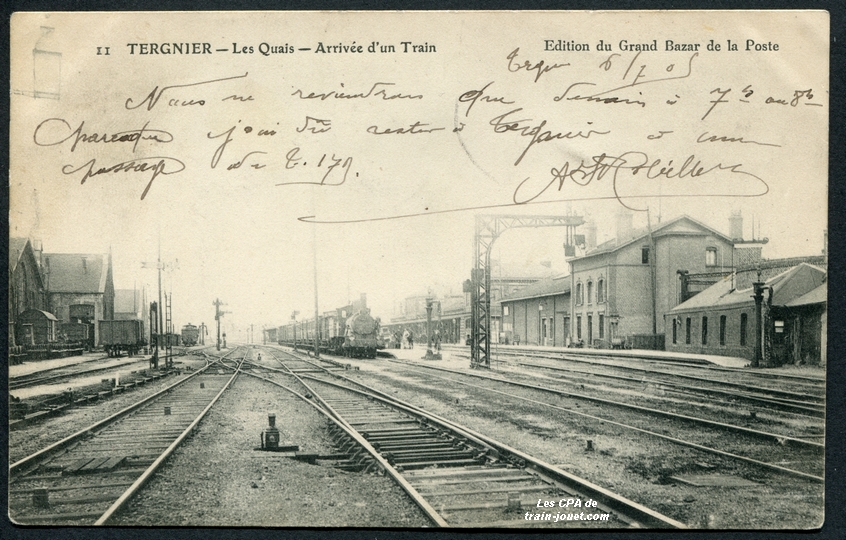 11 TERGNIER — Les Quais — Arrivée d'un Train
Edition du Grand Bazar de la Poste
Tergnier 6/7 05
Nous ne reviendrons que demain à 7h ou 8h
parceque j'ai dû rester à Tergnier
passage de T. 179.
Les CPA de
train-jouet.com